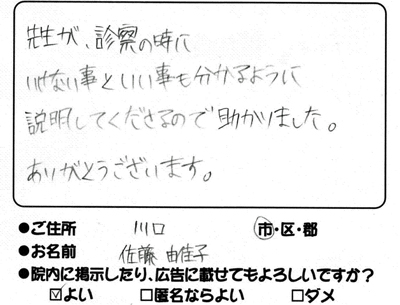 先生が、診察の時に
いけない事といい事も分かるように
説明してくださるので助かりました。
ありがとうございます。
●ご住所 川口 市・区・郡
●お名前 佐藤 由佳子
●院内に掲示したり、広告に載せてもよろしいですか？
☑よい □匿名ならよい □ダメ